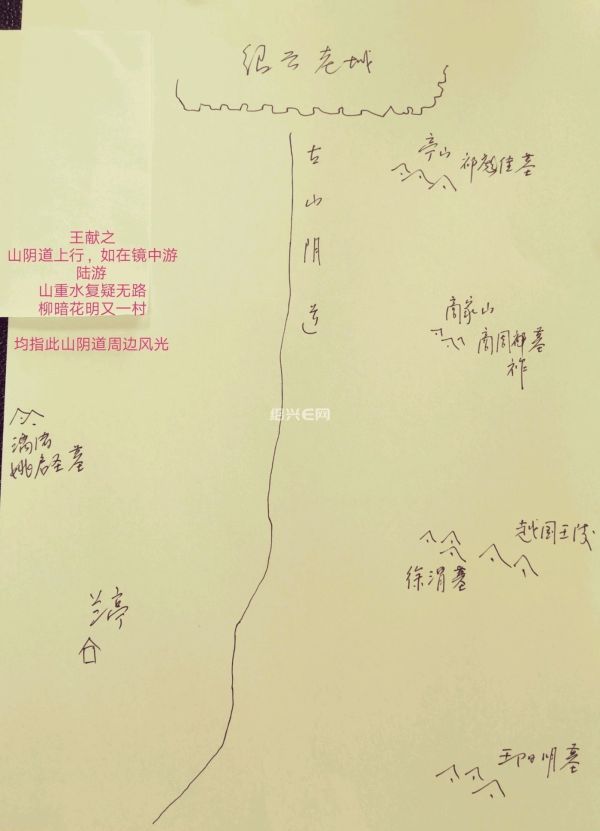 绍兴老城
古山阴道
亭山
祁彪佳墓
王献之
山阴道上行，如在镜中游
陆游
山重水复疑无路
柳暗花明又一村
均指此山阴道周边风光
商家山
商周祚墓
绍兴E网
漓渚
姚启圣墓
越国王陵
徐渭墓
兰亭
王阳明墓